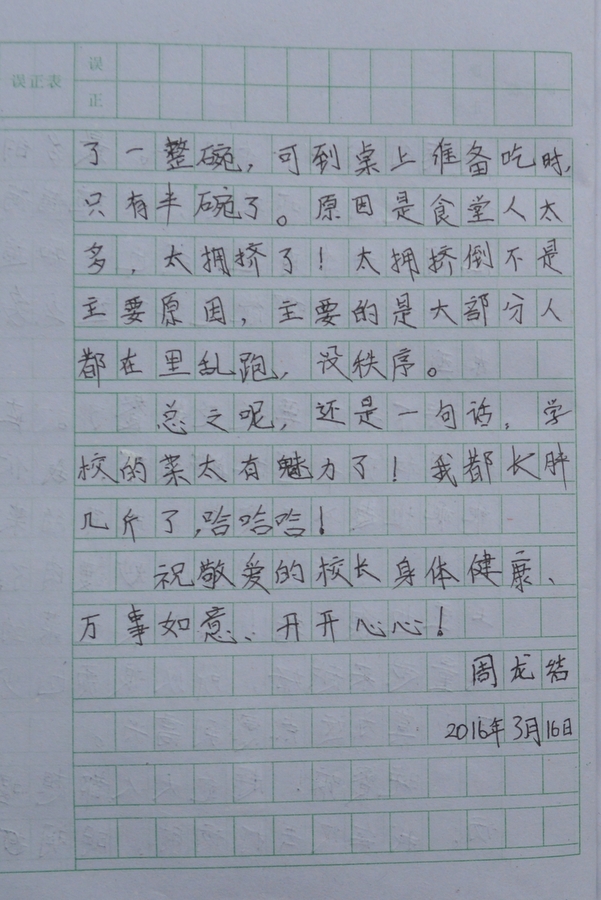 误正表
误
正
了一整碗，可到桌上准备吃时，
只有半碗了。原因是食堂人太
多，太拥挤了！太拥挤倒不是
主要原因，主要的是大部分人
都在里乱跑，没秩序。
总之呢，还是一句话，学
校的菜太有魅力了！我都长胖
几斤了，哈哈哈！
祝敬爱的校长身体健康、
万事如意、开开心心！
周龙结
2016年3月16日